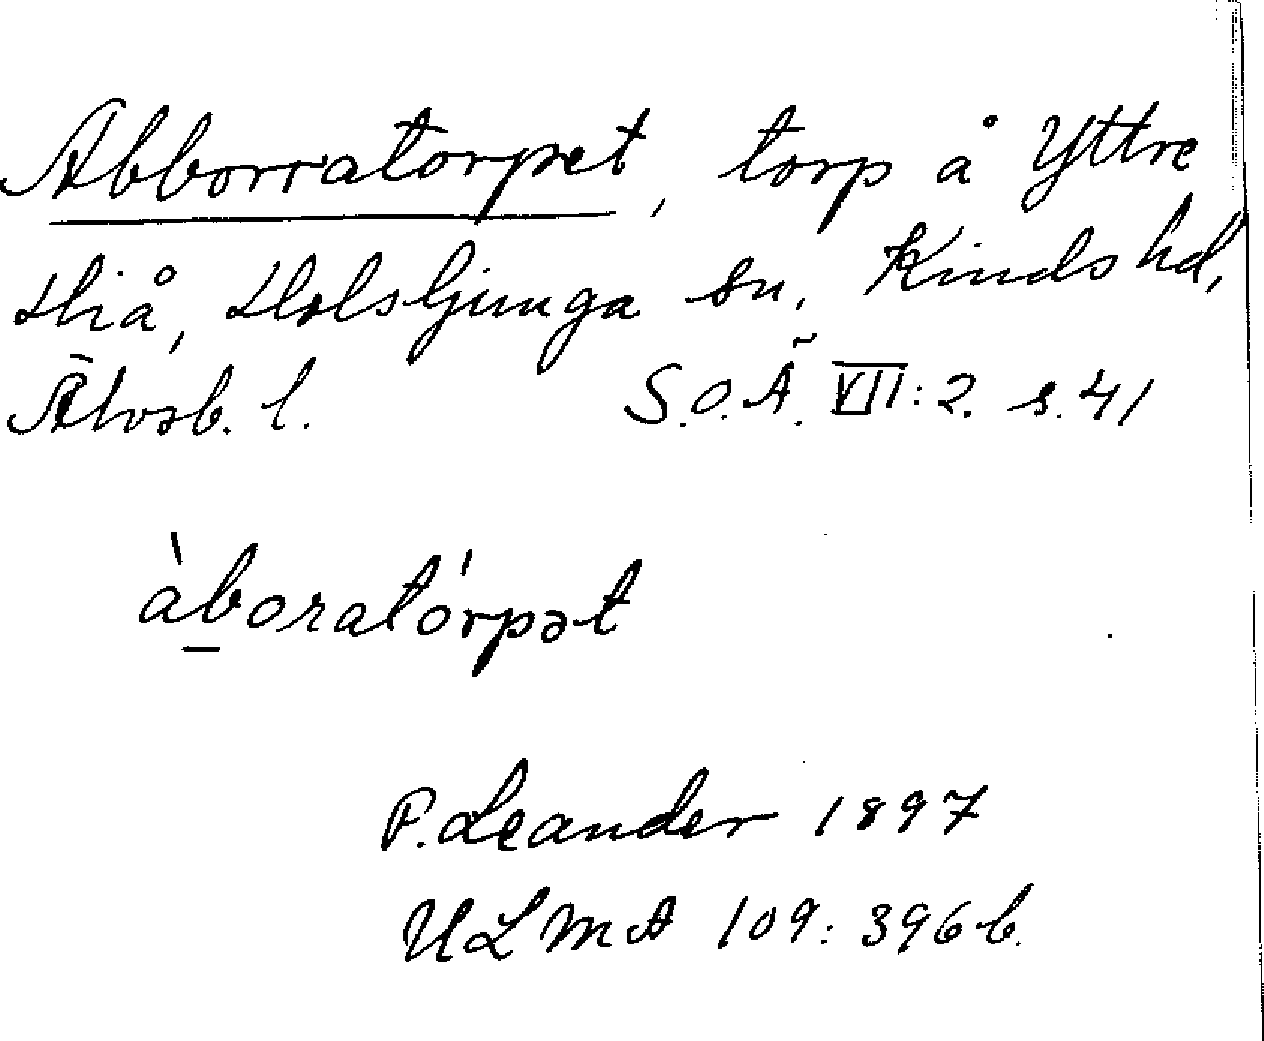 Abborratorpet, torp å Yttre
Hiå, Holsljunga sn, Kinds hd,
Älvsb. l. S.O.Ä. VII:2. s. 41
àboratórpət
P. Leander 1897
ULMA 109:396b.